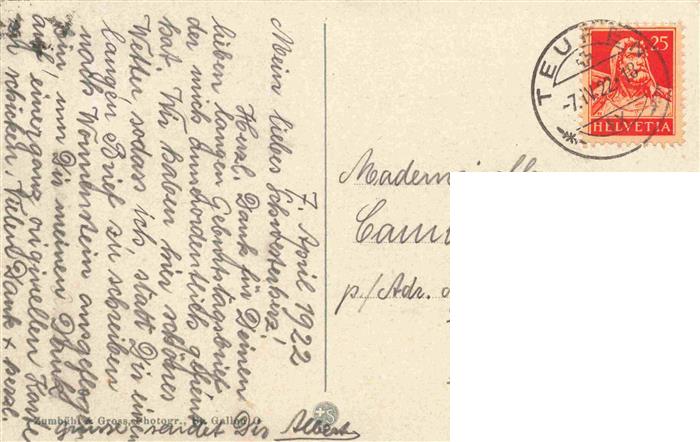 7. April 1922
Mein liebes Schwesterherz,
Herzl. Dank für Deinen
lieben langen Geburtstagsbrief
der mich ausserordentlich gefreut
hat. Wir haben hier schönes
Wetter, sodass ich, statt Dir einen
langen Brief zu schreiben
nach angeflogen
bin, um Dir meinen Dank
auf einer ganz originellen Karte
zu schicken. Vielen Dank & herzl.
Grüsse sendet Dir Albert
Zumbühl & Gross, Photogr., St. Gallen O
TEUFEN
-7.IV.22-18
25
HELVETIA
Mademoiselle
Cam
p/Adr.